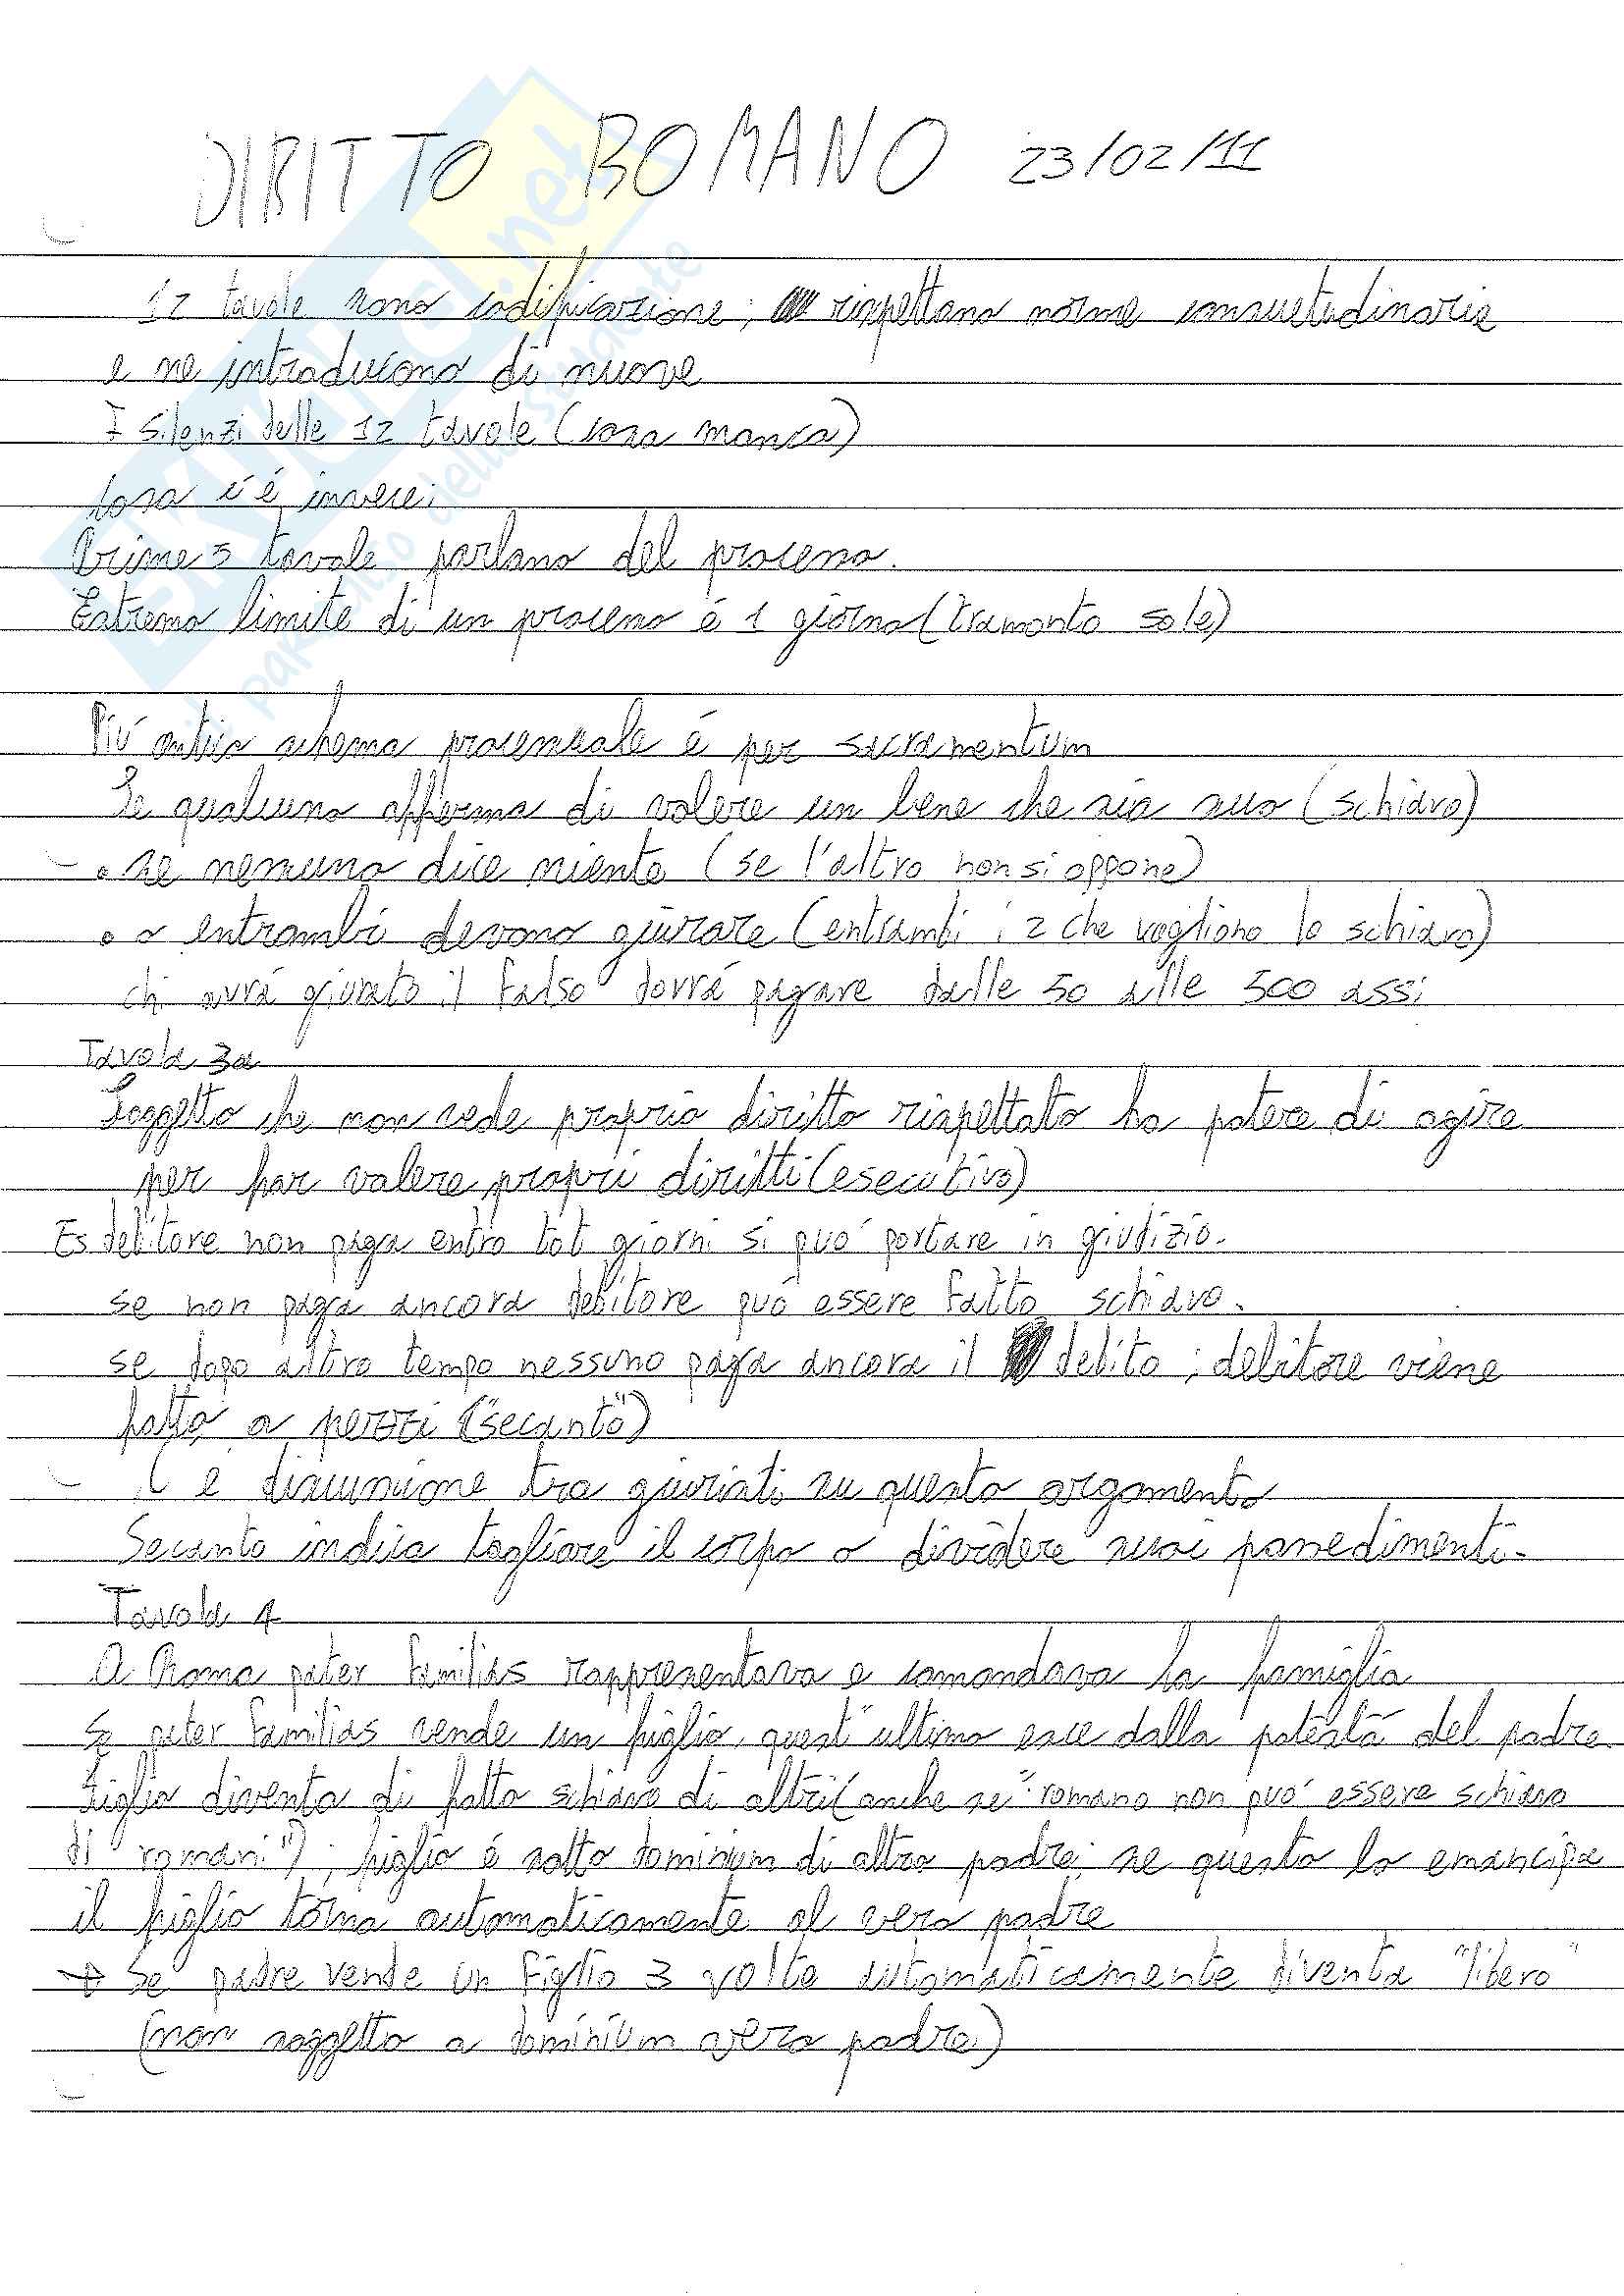 DIRITTO ROMANO 23/02/11
12 tavole sono codificazione; rispettano norme consuetudinarie
e ne introducono di nuove
I silenzi delle 12 tavole (cosa manca)
Cosa c'é invece:
Prime 3 tavole parlano del processo.
Estremo limite di un processo é 1 giorno (tramonto sole)
Piú antico schema processuale é per sacramentum
Se qualcuno afferma di volere un bene che sia suo (schiavo)
• se nessuno dice niente (se l'altro non si oppone)
• o entrambi devono giurare (entrambi i 2 che vogliono lo schiavo)
chi avrá giurato il falso dovrá pagare dalle 50 alle 500 assi
Tavola 3a
Soggetto che non vede proprio diritto rispettato ha potere di agire
per far valere propri diritti (esecutivo)
Es debitore non paga entro tot giorni si puó portare in giudizio.
se non paga ancora debitore puó essere fatto schiavo.
se dopo altro tempo nessuno paga ancora il debito; debitore viene
fatto a pezzi ("secanto")
C'é discussione tra giuristi su questo argomento
Secanto indica tagliare il corpo o dividere suoi possedimenti.
Tavola 4
A Roma pater familias rappresentava e comandava la famiglia
Se pater familias vende un figlio, quest'ultimo esce dalla potestá del padre.
Figlio diventa di fatto schiavo di altri (anche se "romano non puó essere schiavo
di romani"); figlio é sotto dominium di altro padre; se questo lo emancipa
il figlio torna automaticamente al vero padre
→ Se padre vende un figlio 3 volte automaticamente diventa "libero"
(non soggetto a dominium vero padre)